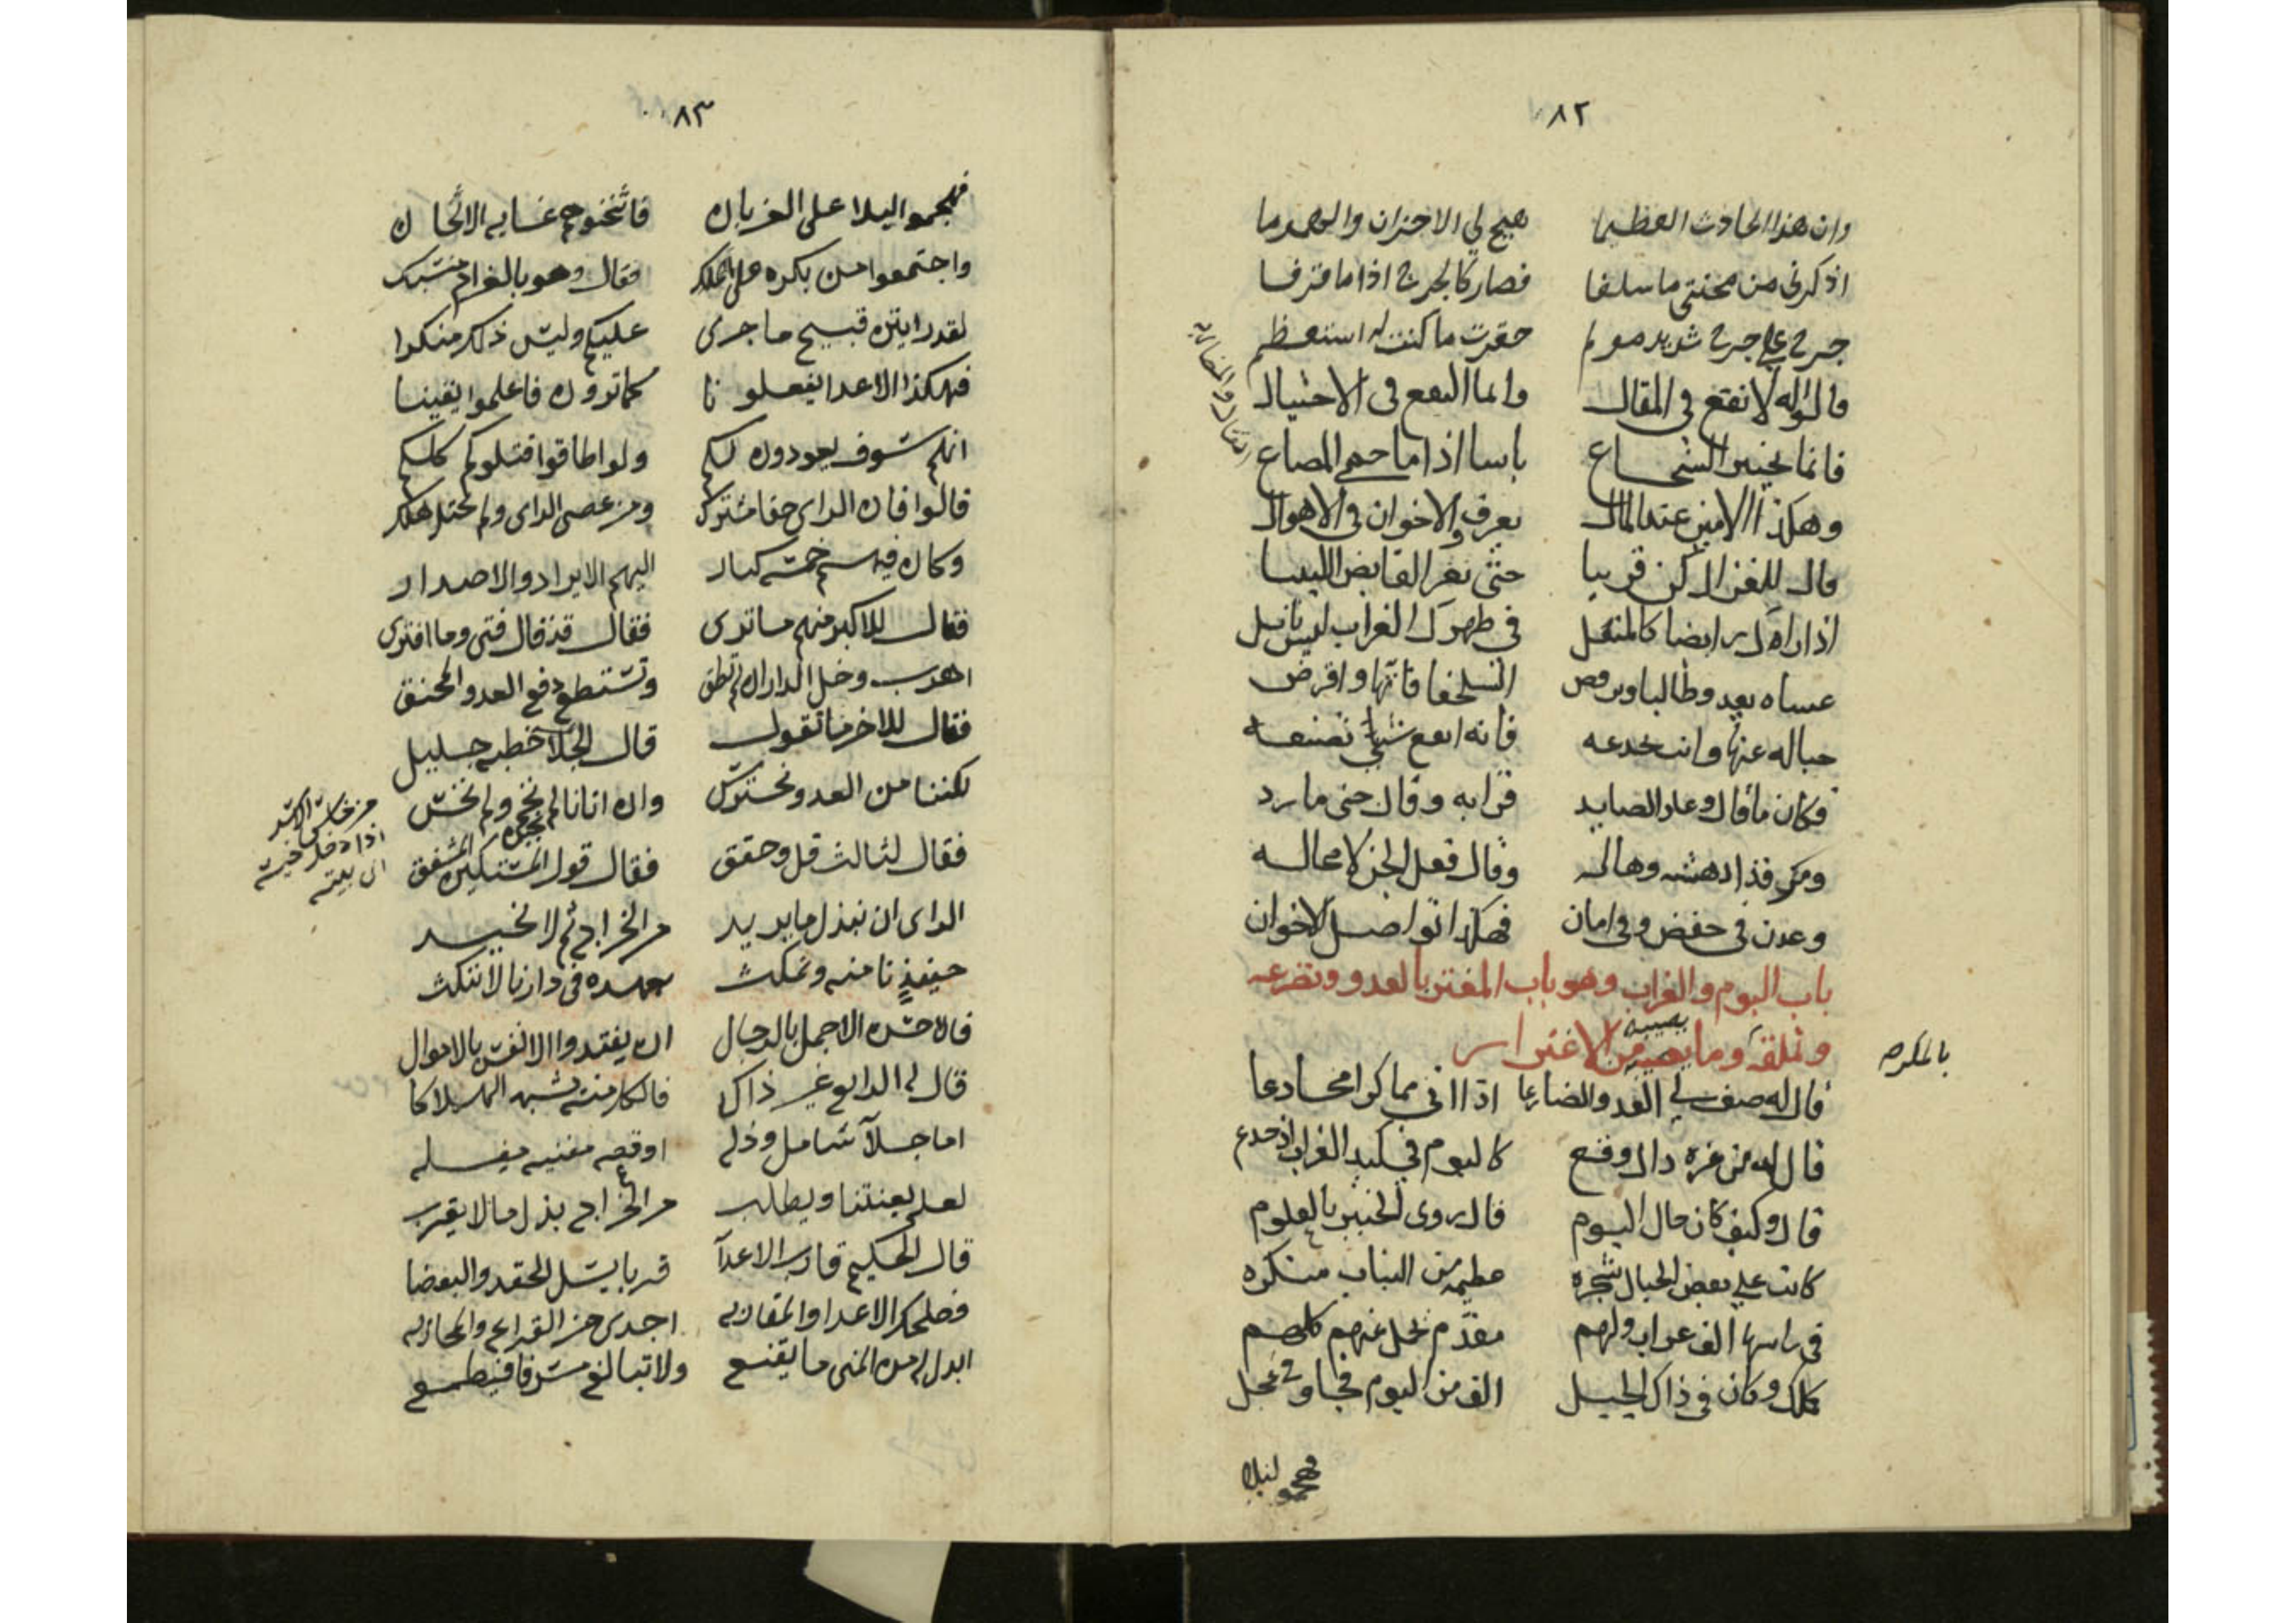 ٨٢
وان هذا الحادث العظيما هيج لي الاحزان والهموما
اذكرني من محنتي ما سلفا فصار كالجرح اذا ما قرفا
جرح علي جرح شديد مولم حقرت ما كنت له استعظم
قالوا له لا نفع في المقال وانما النفع في الاحتيال
فانما يختبر الشجاع باسا اذا ما حمي المصاع
وهكذا الامين عند المال يعرف والاخوان في الاهوال
قال للغزال كن قريبا حتى تغر القانص اللبيبا
اذا راك رابضا كالمثقل في ظهرك الغراب ليس ياتل
عساه يعدو طالبا وبرفض السلحفا فاتها واقرض
حباله عنها وانت خدعه فانه انفع شيء تصنعه
فكان ما قال وعاد الصايد قرابه وقال حتى ما رد
ومكر قد ادهشه وهاله وقال فعل الجن لا محاله
وعدن في خفض وفي امان فهكذا تواصل الاخوان
باب البوم والغراب وهو باب المغتر بالعدو وتضرعه
وتملقه وما يصيبه من الاغترار
يصيبه
بالمكروه
قال له صف لي العدو الضارعا اذا اتى مماكرا مخادعا
قال له من غره ذاك وقع كالبوم في كيد الغراب اذ خدع
قال وكيف كان حال البوم قال روى الخبير بالعلوم
كانت علي بعض الجبال شجره عظيمه من النبات منكره
في راسها الف غراب ولهم مقدم نحل عنهم كلهم
ملك وكان في ذاك الجبل الف من البوم فجاو في عجل
فهجموا ليلا
٨٣
فهجموا ليلا على الغربان فاثخنوهم غايه الاثخان
واجتمعوا من بكره على الملك فقال وهو بالغرام مشتبك
لقد رايتن قبيح ما جرى عليكم وليس ذلك منكرا
فهكذا الاعدا يفعلونا كما ترون فاعلموا يقينا
انهم سوف يعودون لكم ولو اطاقوا قتلوكم كلكم
قالوا فان الراي حقا مشترك ومن عصى الراى ولم يحتل هلك
وكان فيهم خمسه كبار اليهم الايراد والاصدار
فقال للاكبر منهم ما ترى فقال قد قال فتى وما افترى
اهرب وخل الدار ان لم تطق وتستطع دفع العدو المحنق
فقال للاخر ما تقول قال الجلا خطبه جليل
لكننا من العدو نحترس وان اتانا لم نخم ولم نخس
فقال لثالث قل وحقق فقال قول المستكين المشفق
الراى ان نبذل ما يريد من الخراج ثم لا نحيد
حينئذ نامنه ونمكث بعهده في دارنا لا ننكث
فان حسن الاجمل بالرجال ان يفتدوا الانفس بالاموال
قال له الرابع غير ذاك فالكل منه يشبه الهلاكا
اما جلا شامل وذله او قصه مفنيه
لعله يعنتنا ويطلب من الخراج بذل ما لا يقرب
قال الحكيم قارب الاعدا قربا يسل الحقد والبغضا
فصلحك الاعدا والمقاربه اجدى من القراع والمحاربه
ابذل له من المنى ما يقنع ولا تبالغ مسرفا فيطمع